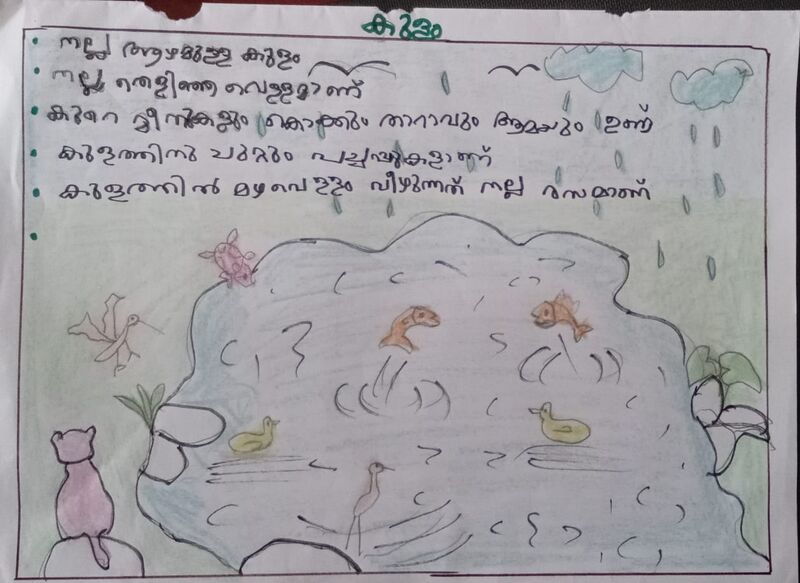 കുളം
നല്ല ആഴമുള്ള കുളം
നല്ല തെളിഞ്ഞ വെള്ളമാണ്
കുറെ മീനുകളും കൊക്കും താറാവും ആമയും ഉണ്ട്
കുളത്തിനു ചുറ്റും പച്ചപ്പുകളാണ്
കുളത്തിൽ മഴവെള്ളം വീഴുന്നത് നല്ല രസമാണ്